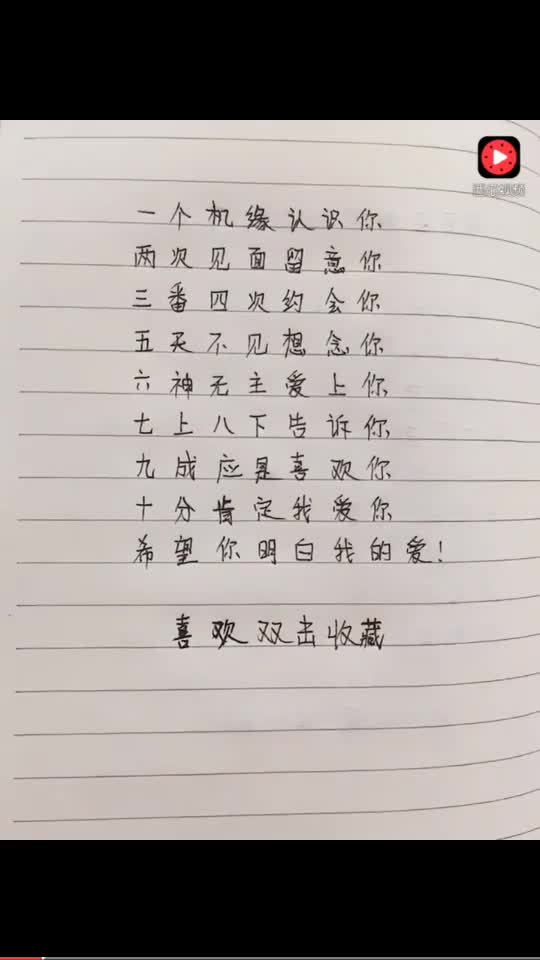 西瓜视频
一个机缘认识你
两次见面留意你
三番四次约会你
五天不见想念你
六神无主爱上你
七上八下告诉你
九成应是喜欢你
十分肯定我爱你
希望你明白我的爱!
喜欢双击收藏